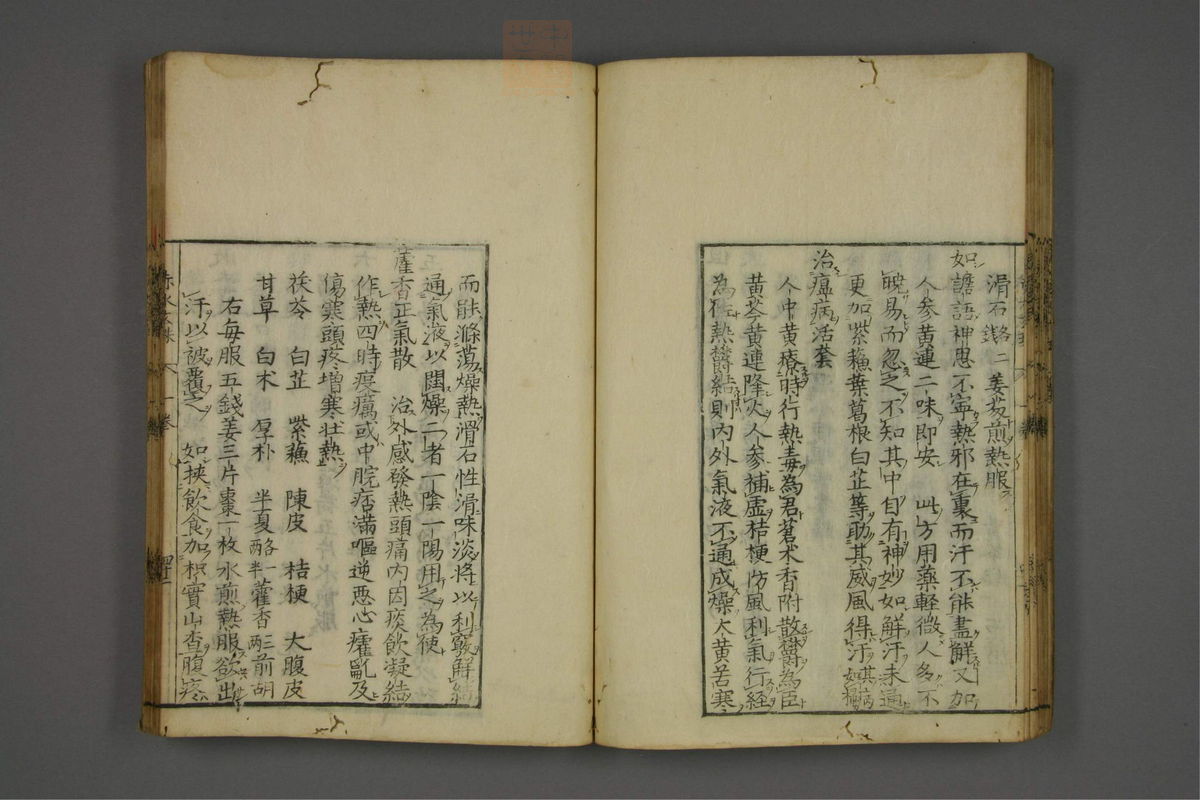 滑石錢二 姜葱煎熱服
如譫語神思不寧熱邪在裏而汗不能盡解又加
人參黄連二味即安 此方用藥輕微人多不
曉易而忽之不知其中自有神妙如解汗未通
更加紫蘓葉葛根白芷等助其威風得汗其病如掃
治瘟病活套
人中黄療時行熱毒為君蒼术香附散欝為臣
黄芩黄連降火人參補虛桔梗防風利氣行経
為佐熱欝結則内外氣液不通成燥大黄苦寒
而能滌蕩燥熱滑石性滑味淡將以利竅解結
通氣液以閏燥二者一陰一陽用之為使
藿香正氣散 治外感發熱頭痛内因痰飲凝結
作熱四時疫癘或中脘痞滿嘔逆悪心癨亂及
傷寒頭疼增寒壮熱
茯苓 白芷 紫蘓 陳皮 桔梗 大腹皮
甘草 白术 厚朴 半夏各一兩半 藿香三兩 前胡
右每服五錢姜三片棗一枚水煎熱服欲出
汗以被覆之 如挾飲食加枳實山査腹疼